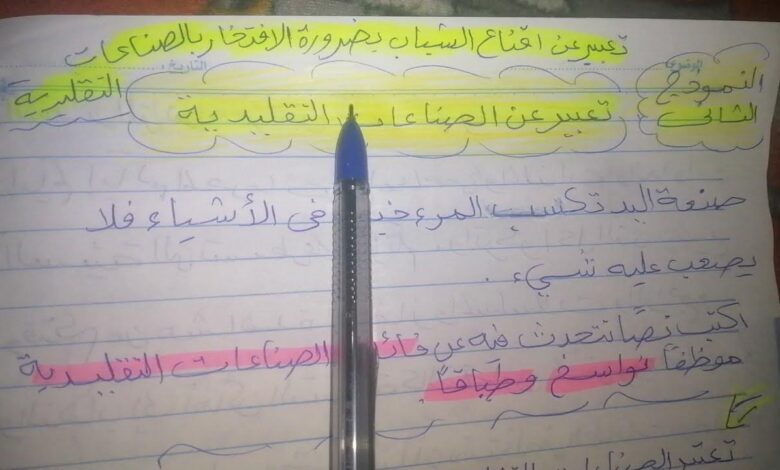 تعبير عن اقناع الشباب بضرورة الافتخار بالصناعات
التقليدية
الموضوع:
التاريخ:
النموذج
الثاني
تعبير عن الصناعات التقليدية
صنعة اليد تكسب المرء في الأشياء فلا
يصعب عليه شيء.
اكتب نصًا تتحدث فيه عن الصناعات التقليدية
موظفًا نواسخ وطباقًا.
تعتبر